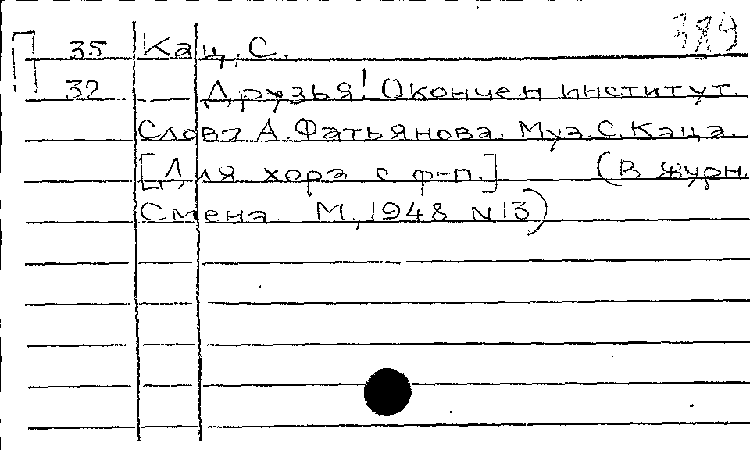 П 35 Кац, С. 389
32 Друзья! Окончен институт.
Слова А. Фатьянова. Муз. С. Каца.
[Для хора с ф-п.] (В журн.
Смена М, 1948 № 13)